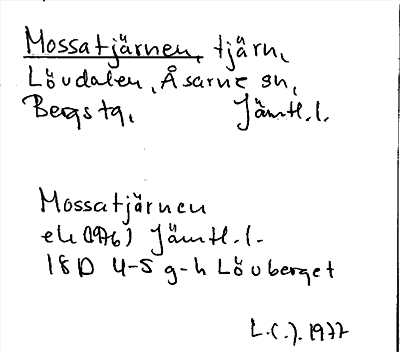 Mossatjärnen, tjärn,
Lövdalen, Åsarne sn,
Bergs tg, Jämtl.l.
Mossatjärnen
ek (1976) Jämtl.l.
18D 4-5 g-h Lövberget
L.C.J. 1977